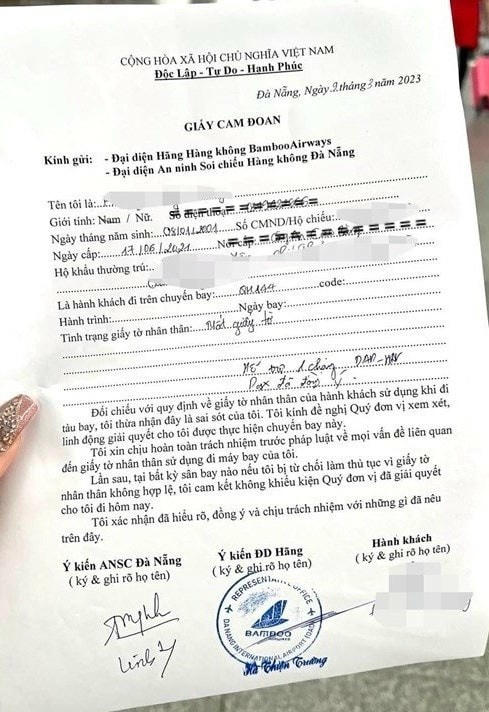 CỘNG HÒA XÃ HỘI CHỦ NGHĨA VIỆT NAM
Độc Lập - Tự Do - Hạnh Phúc
Đà Nẵng, Ngày 9 tháng 3 năm 2023
GIẤY CAM ĐOAN
Kính gửi: - Đại diện Hãng Hàng không BambooAirways
- Đại diện An ninh Soi chiếu Hàng không Đà Nẵng
Tên tôi là:
Giới tính: Nam / Nữ. Số điện thoại:
Ngày tháng năm sinh: 08/01/2001 Số CMND/Hộ chiếu:
Ngày cấp: 17/06/2021
Hộ khẩu thường trú:
Là hành khách đi trên chuyến bay: QH144 code:
Hành trình: Ngày bay:
Tình trạng giấy tờ nhân thân: Mất giấy tờ
1 chặng DAD-HAN
Pax đã
Đối chiếu với quy định về giấy tờ nhân thân của hành khách sử dụng khi đi
tàu bay, tôi thừa nhận đây là sai sót của tôi. Tôi kính đề nghị Quý đơn vị xem xét,
linh động giải quyết cho tôi được thực hiện chuyến bay này.
Tôi xin chịu hoàn toàn trách nhiệm trước pháp luật về mọi vấn đề liên quan
đến giấy tờ nhân thân sử dụng đi máy bay của tôi.
Lần sau, tại bất kỳ sân bay nào nếu tôi bị từ chối làm thủ tục vì giấy tờ
nhân thân không hợp lệ, tôi cam kết không khiếu kiện Quý đơn vị đã giải quyết
cho tôi đi hôm nay.
Tôi xác nhận đã hiểu rõ, đồng ý và chịu trách nhiệm với những gì đã nêu
trên đây.
Ý kiến ANSC Đà Nẵng Ý kiến ĐD Hãng Hành khách
( ký & ghi rõ họ tên) ( ký & ghi rõ họ tên) ( ký & ghi rõ họ tên)
REPRESENTATIVE OFFICE
BAMBOO
AIRWAYS
DA NANG INTERNATIONAL AIRPORT (DAD)
Linh
Hà Thiện Trường